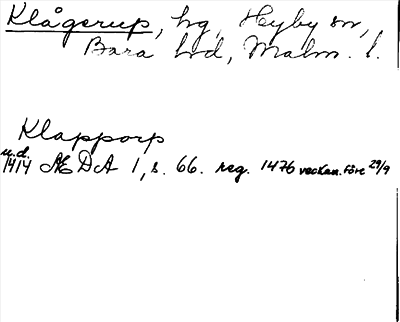 Klågerup, hg, Hyby sn,
Bara hd, Malm. l.
Klapporp
u.d.
1414 ÆDA 1, s. 66. reg. 1476 veckan före 29/9